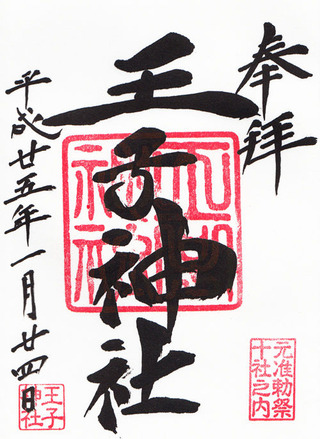 奉拝
王子神社
平成廿五年一月廿四日
王子神社
元准勅祭
十社之内
王子
神社